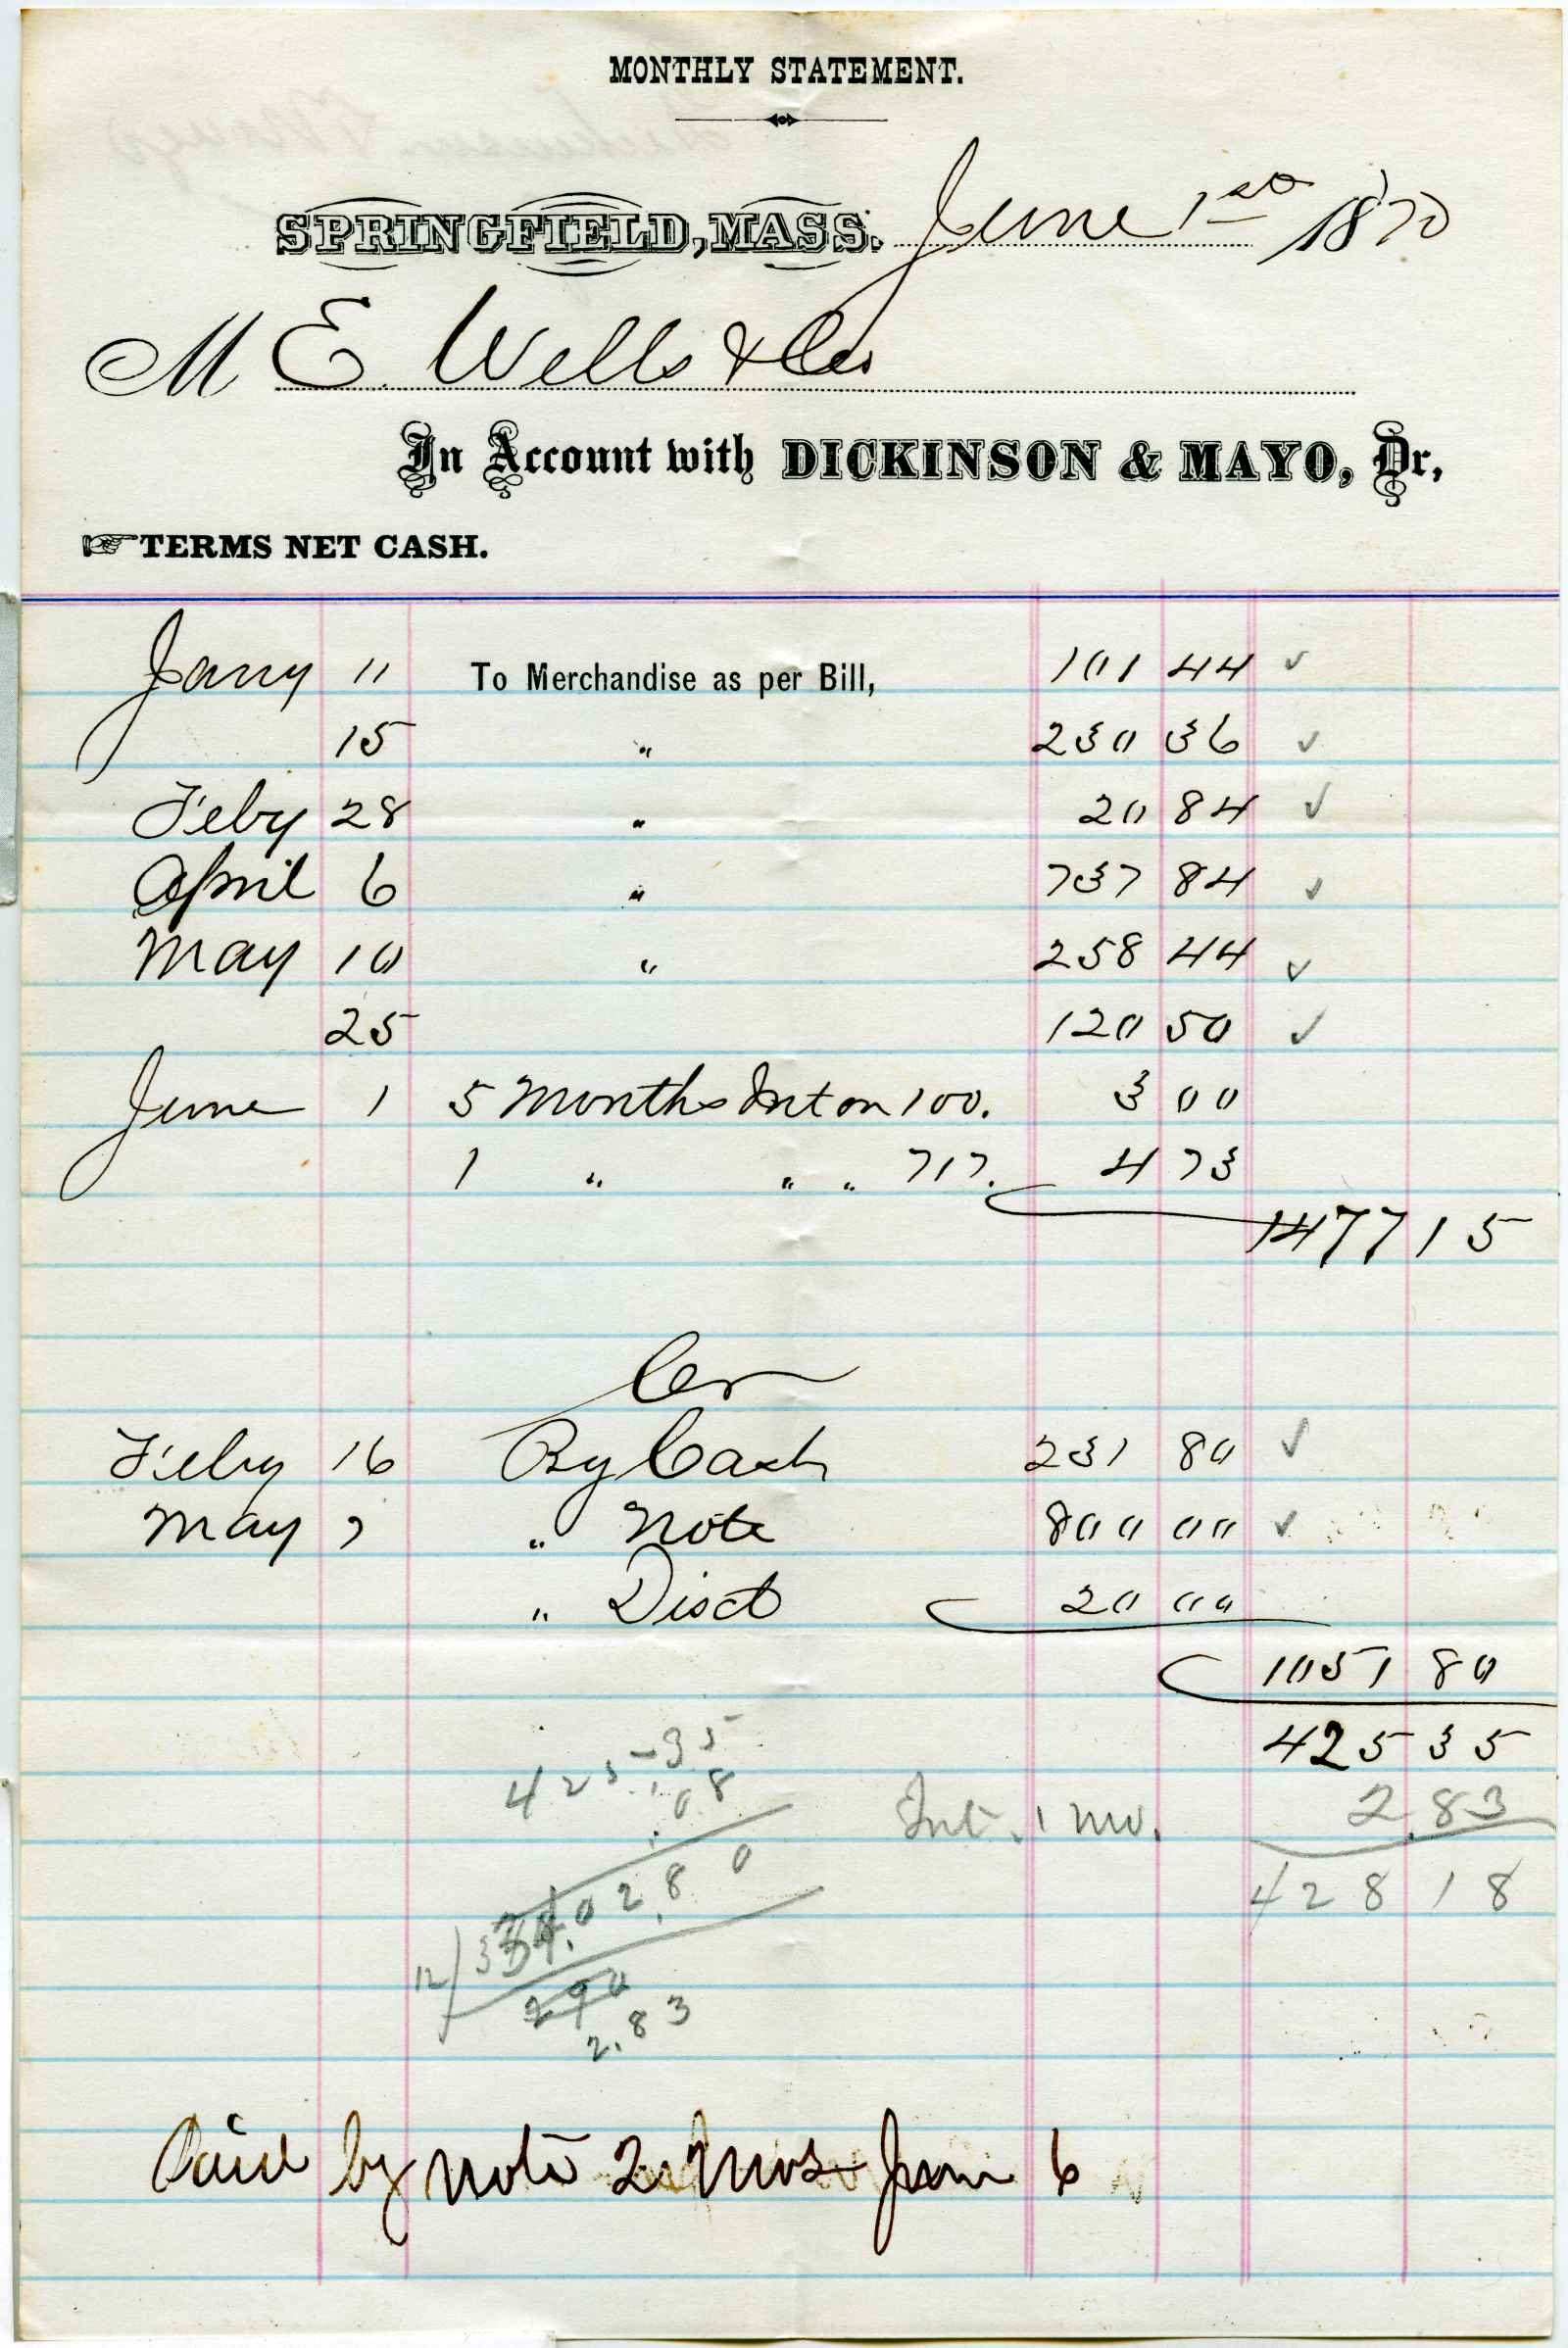 MONTHLY STATEMENT.
SPRINGFIELD, MASS. June 1st 1870
M E. Wells & Co
In Account with DICKINSON & MAYO, Dr,
TERMS NET CASH.
Jany 11 To Merchandise as per Bill, 101 44 ✓
15 " 230 36 ✓
Feby 28 " 20 84 ✓
April 6 " 737 84 ✓
May 10 " 258 44 ✓
25 120 50 ✓
June 1 5 Months Int on 100. 3 00
1 " " " 717. 4 73
1477 15
Cr
Feby 16 By Cash 231 80 ✓
May 7 " Note 800 00 ✓
" Disct 20 00
1051 80
425 35
425.35
.08
Int. 1 mo. 2.83
428 18
12 34.02.80
290
2.83
Paid by note 2 mos June 6